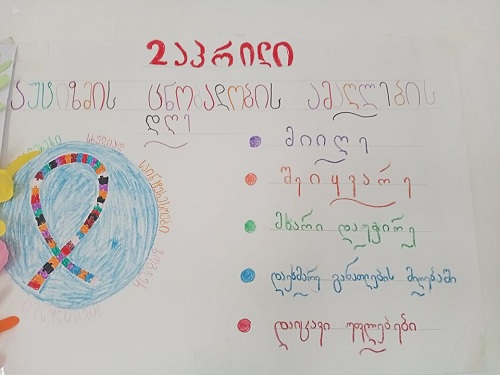 2 აპრილი
აუტიზმის ცნობადობის ამაღლების
დღე
მიიღე
შეიყვარე
მხარი დაუჭირე
დაეხმარე განათლების მიღებაში
დაიცავი უფლებები